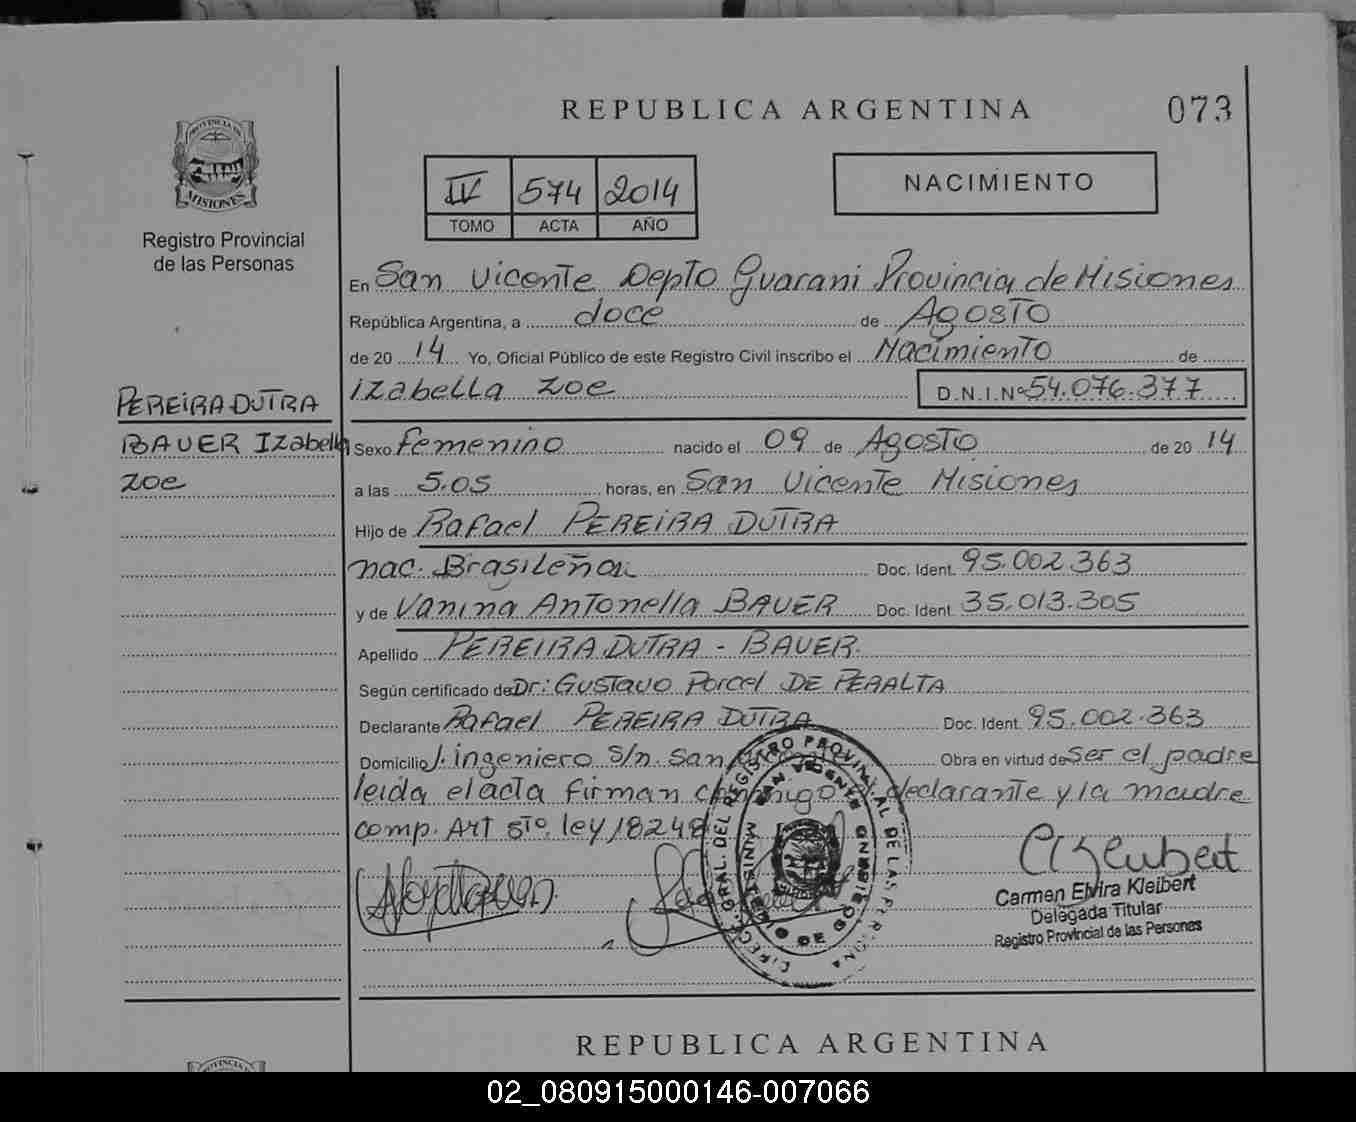 REPUBLICA ARGENTINA
073
IV 574 2014
TOMO ACTA AÑO
NACIMIENTO
PROVINCIA DE
MISIONES
Registro Provincial
de las Personas
En San Vicente Depto Guarani Provincia de Misiones
República Argentina, a doce de Agosto
de 20 14 Yo, Oficial Público de este Registro Civil inscribo el Nacimiento de
Izabella Zoe D.N.I.Nº 54.076.377
PEREIRA DUTRA
BAUER Izabella
Zoe
Sexo femenino nacido el 09 de Agosto de 20 14
a las 5.05 horas, en San Vicente Misiones
Hijo de Rafael PEREIRA DUTRA
nac. Brasileña Doc. Ident. 95.002.363
y de Vanina Antonella BAUER Doc. Ident. 35.013.305
Apellido PEREIRA DUTRA - BAUER.
Según certificado de Dr: Gustavo Porcel DE PERALTA
Declarante Rafael PEREIRA DUTRA Doc. Ident. 95.002.363
Domicilio J. ingeniero S/n. San Vicente Obra en virtud de Ser el padre
leida el acta firman conmigo el declarante y la madre
comp. Art 5to. ley 18248
Carmen Elvira Kleibert
Delegada Titular
Registro Provincial de las Personas
GRAL. DEL REGISTRO PROVINCIAL DE LAS PERSONA
SAN VICENTE
MINISTERIO DE GOBIERNO
REPUBLICA ARGENTINA
02_080915000146-007066